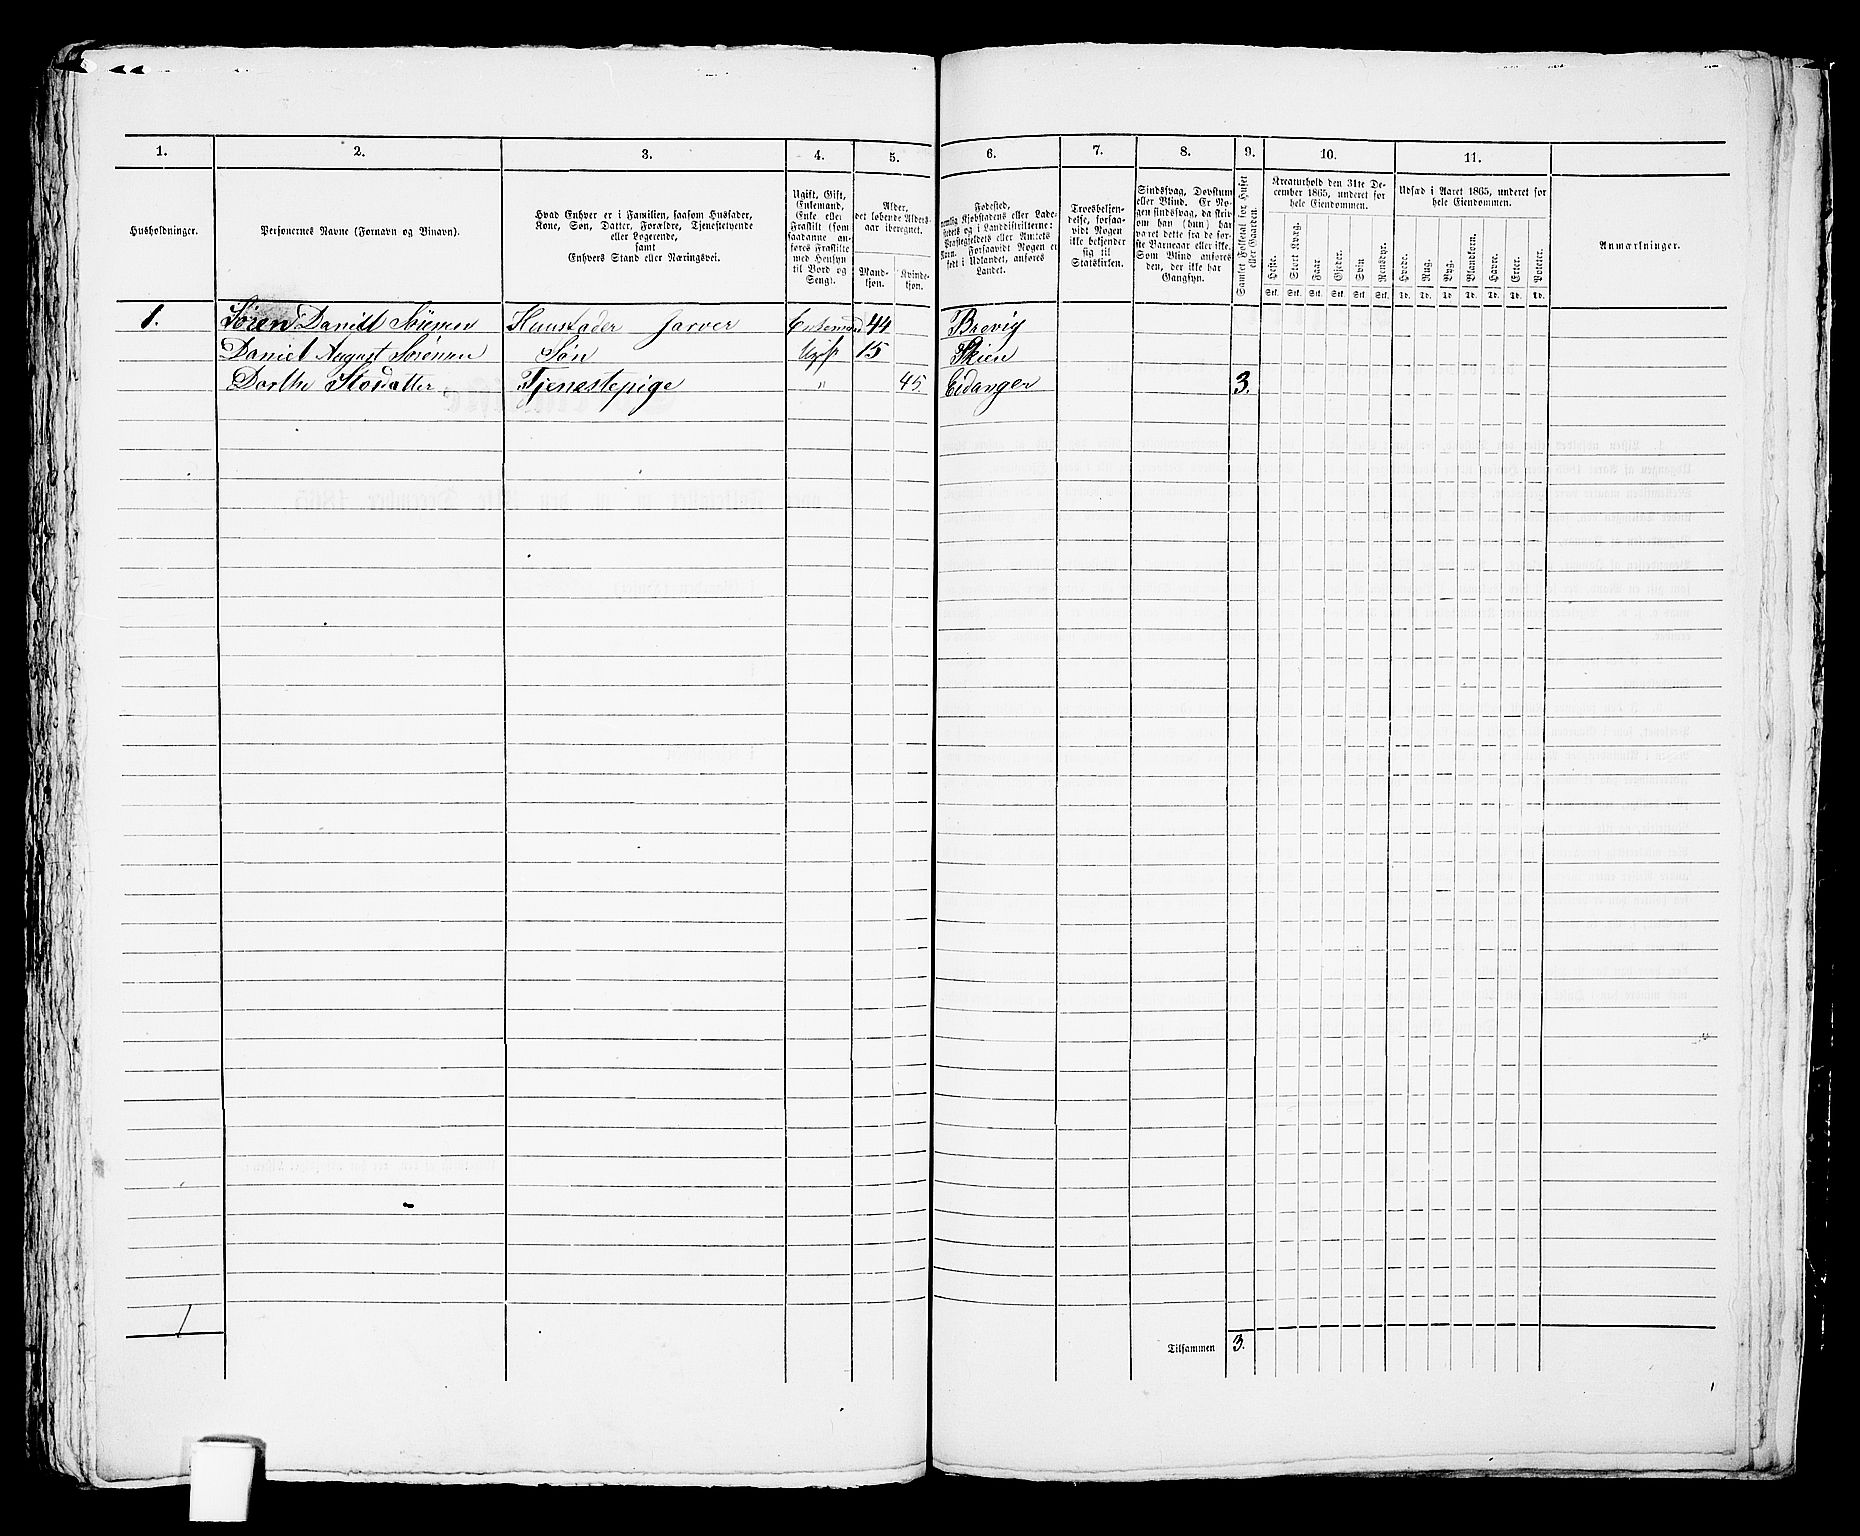 1. 2. 3. 4. 5. 6. 7. 8. 9. 10. 11.
Husholdninger.
Personernes Navne (Fornavn og Binavn).
Hvad Enhver er i Familien, saasom Husfader,
Kone, Søn, Datter, Forældre, Tjenestetyende
eller Logerende,
samt
Enhvers Stand eller Næringsvei.
Ugift, Gift,
Enkemand,
Enke eller
Fraskilt (som
saadanne an-
føres Fraskilte
med Hensyn
til Bord og
Seng).
Alder,
det løbende Alders-
aar iberegnet.
Mand-
kjøn.
Kvinde-
kjøn.
Fødested,
nemlig Kjøbstadens eller Lade-
stedets og i Landdistrikterne:
Præstegjeldets eller Amtets
Navn. Forsaavidt Nogen er
født i Udlandet, anføres
Landet.
Troesbekjen-
delse, forsaa-
vidt Nogen
ikke bekjender
sig til
Statskirken.
Sindssvag, Døvstum
eller Blind. Er No-
gen sindssvag, da skriv
om han (hun) har
været dette fra de før-
ste Barneaar eller ikke.
Som Blind anføres
den, der ikke har
Gangsyn.
Samlet Folketal for Huset
eller Gaarden.
Kreaturhold den 31te De-
cember 1865, underet for
hele Eiendommen.
Heste. Stort Kvæg. Faar Gjeder. Svin Rensdyr.
Stk. Stk. Stk. Stk. Stk. Stk.
Udsæd i Aaret 1865, underet for
hele Eiendommen.
Hvede. Rug. Byg. Blandkorn. Havre. Erter. Poteter.
Td. Td. Td. Td. Td. Td. Td.
Anmærkninger.
1. Søren Daniel Sørensen Huusfader Enkemand 44 Brevig
Daniel August Sørensen Søn Ugift 15 Skien
Dorthe Tjenestepige " 45. Eidanger 3.
Tilsammen 3.